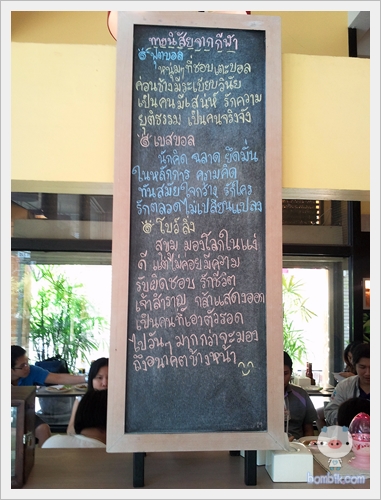 ทายนิสัยจากกีฬา
ฟุตบอล
หนุ่มๆ ที่ชอบเตะบอล
ค่อนข้างมีระเบียบวินัย
เป็นคนมีเสน่ห์ รักความ
ยุติธรรม เป็นคนจริงจัง
เบสบอล
นักคิด ฉลาด ยึดมั่น
ในหลักการ ความคิด
ทันสมัย ใจกว้าง รักใคร
รักตลอดไม่เปลี่ยนแปลง
โบว์ลิ่ง
สุขุม มองโลกในแง่
ดี แต่ไม่ค่อยมีความ
รับผิดชอบ รักชีวิต
เจ้าสำราญ กล้าแสดงออก
เป็นคนที่เอาตัวรอด
ไปวันๆ มากกว่าจะมอง
ถึงอนาคตข้างหน้า
bombik.com